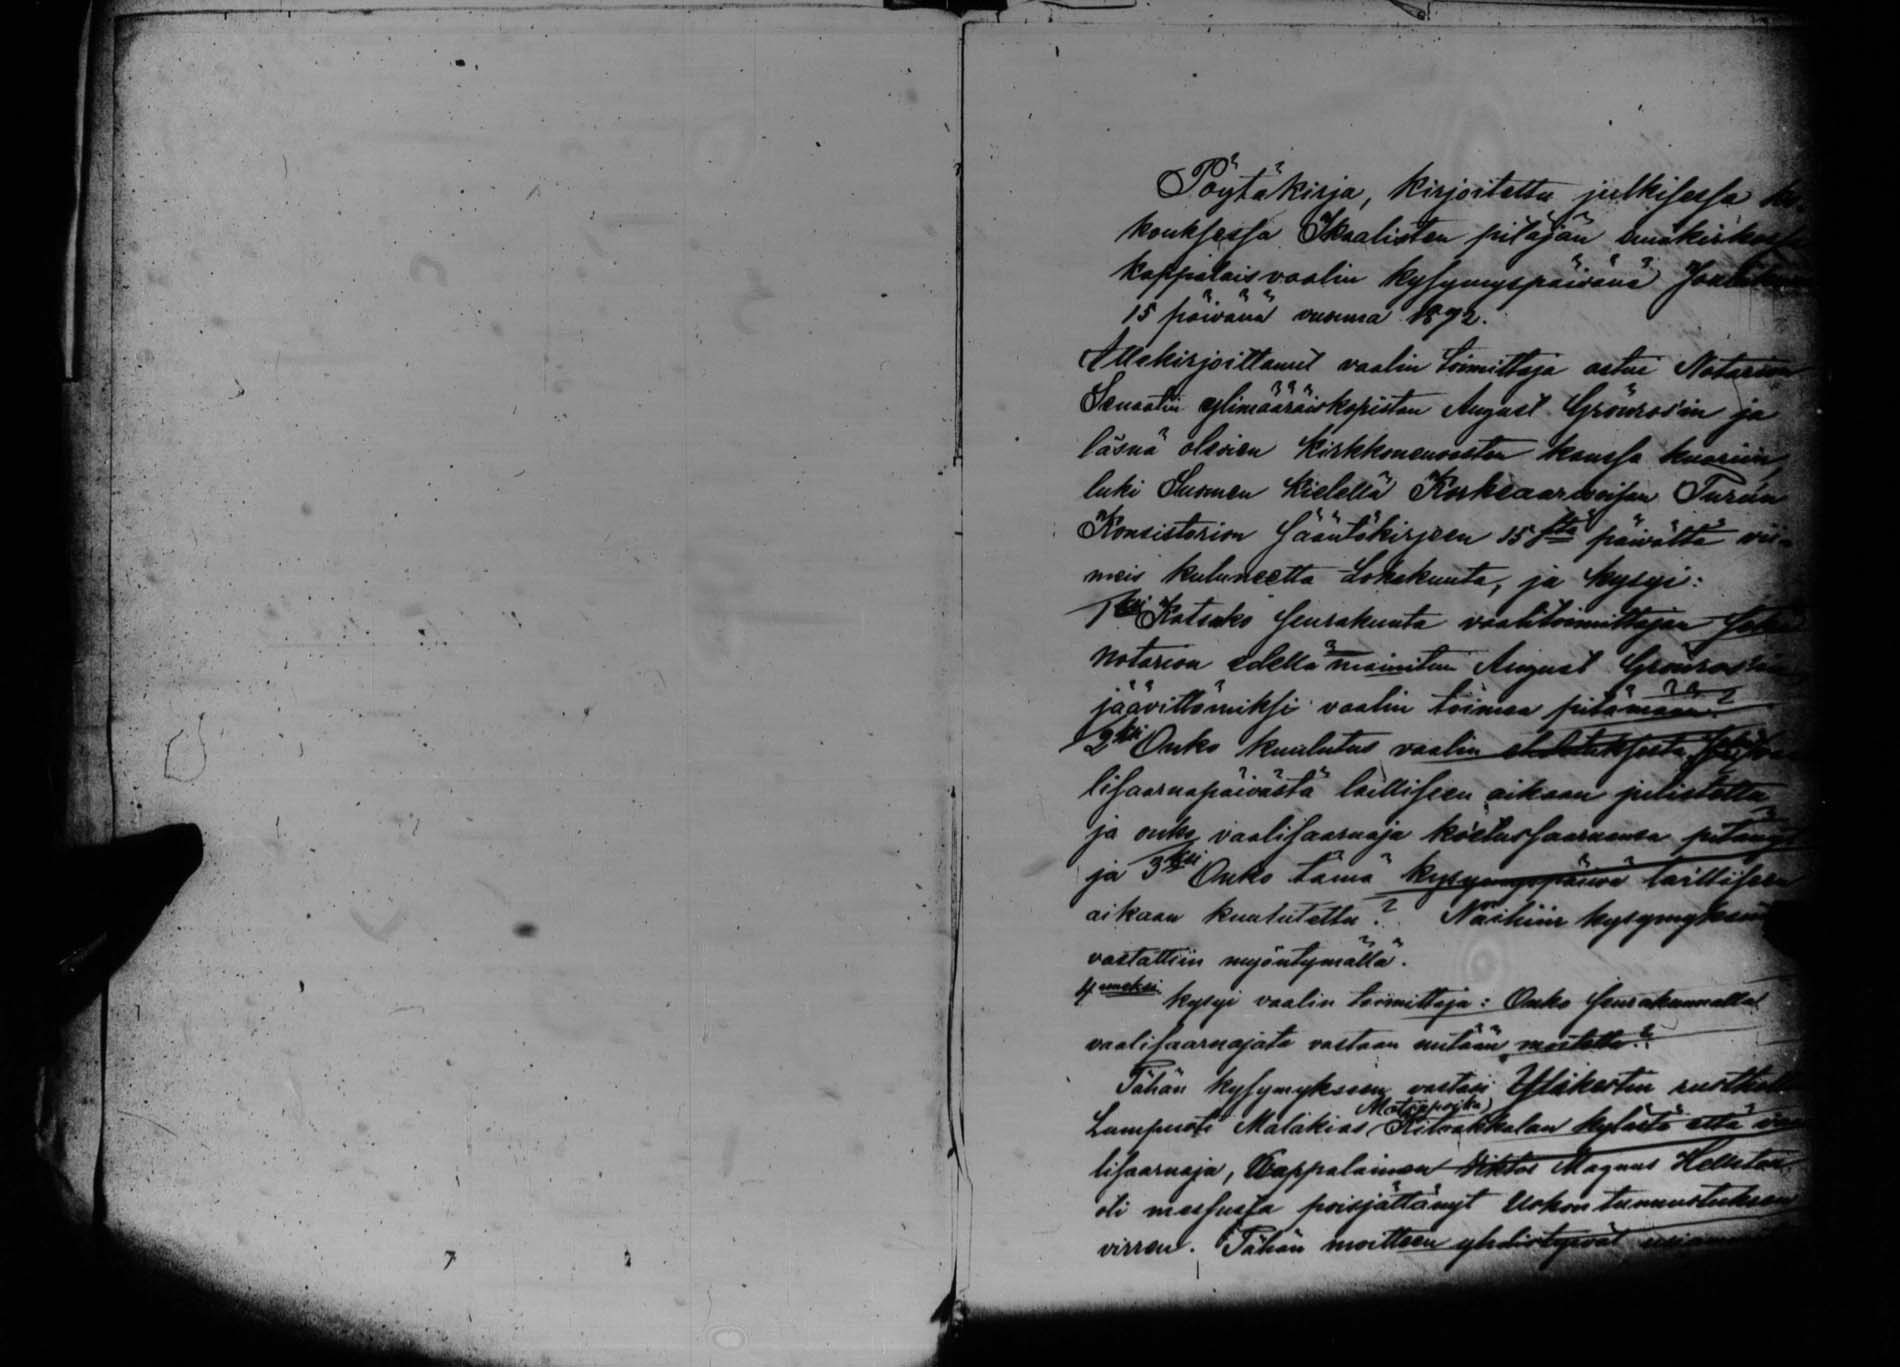 Pöytäkirja, kirjoitettu julkisessa ko-
kouksessa Ikaalisten pitäjän emäkirkossa
kappalaisvaalin kysymyspäivänä Joulukuun
15 päivänä vuonna 1872.
Allekirjoittanut vaalin toimittaja astui Notarion
Senaatin ylimääräiskopistan August Grönroos'in ja
läsnä olevien Kirkkoneuvosten kanssa kuoriin,
luki Suomen kielellä Korkeaarvoisan Turun
Konsistorion Sääntökirjeen 15 stä päivältä vii-
meis kuluneetta Lokakuuta, ja kysyi:
1 ksi Katsooko Seurakunta vaalitoimittajan
notarion edellä mainitun August Grönroos'in
jäävittömiksi vaalin toimea pitämään?
2 ksi Onko kuulutus vaalin
lisaarnapäivästä lailliseen aikaan julistettu
ja onko vaalisaarnaja koetussaarnansa pitänyt
ja 3 ksi Onko tämä kysymyspäivä lailliseen
aikaan kuulutettu? Näihin kysymyksiin
vastattiin myöntymällä.
4 neneksi kysyi vaalin toimittaja: Onko Seurakunnalla
vaalisaarnajata vastaan mitään moitetta?
Tähän kysymykseen vastasi rusthollari
Matinpoika
Lampuoti Malakias kylästä että vaa-
lisaarnaja, Kappalainen Viktor Magnus
oli messusta poisjättänyt Uskon tunnustuksen
virren. Tähän moitteen yhdistyivät